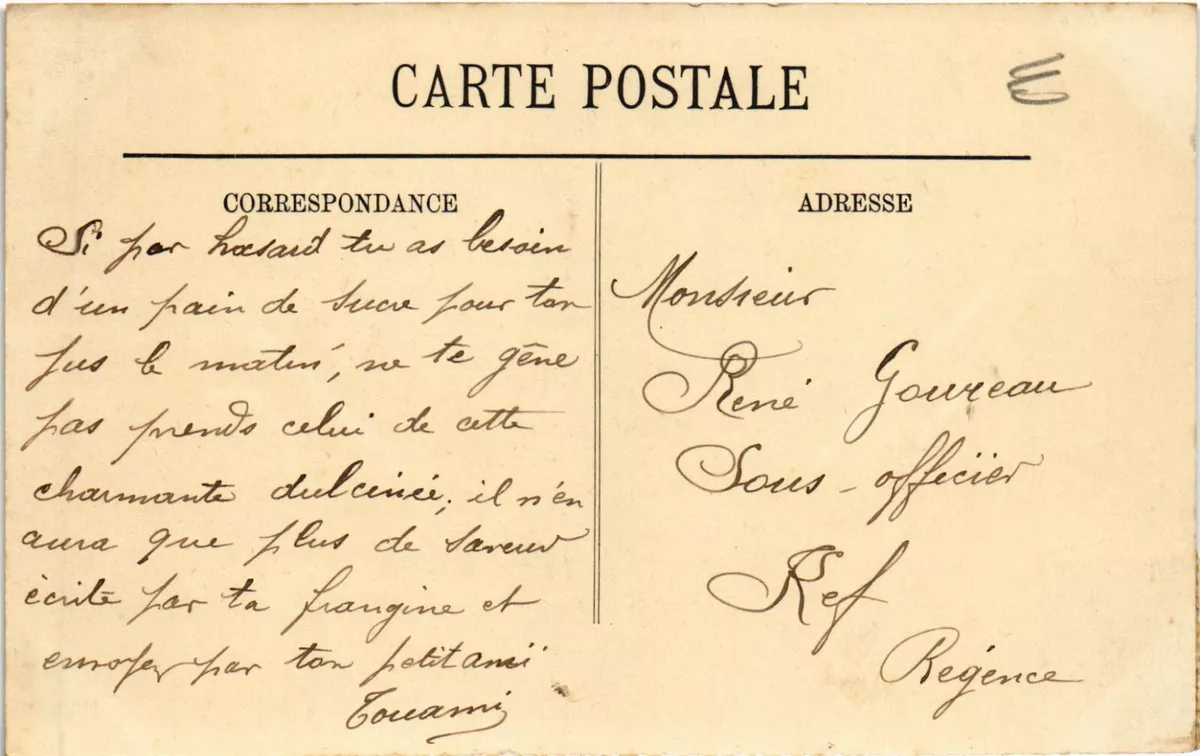 CARTE POSTALE
CORRESPONDANCE
Si par hasard tu as besoin
d'un pain de sucre pour ton
jus le matin, ne te gêne
pas prends celui de cette
charmante dulcinée, il n'en
aura que plus de saveur
écrite par ta frangine et
envoyer par ton petit ami
Touami
ADRESSE
Monsieur
René Goureau
Sous-officier
Kef
Régence